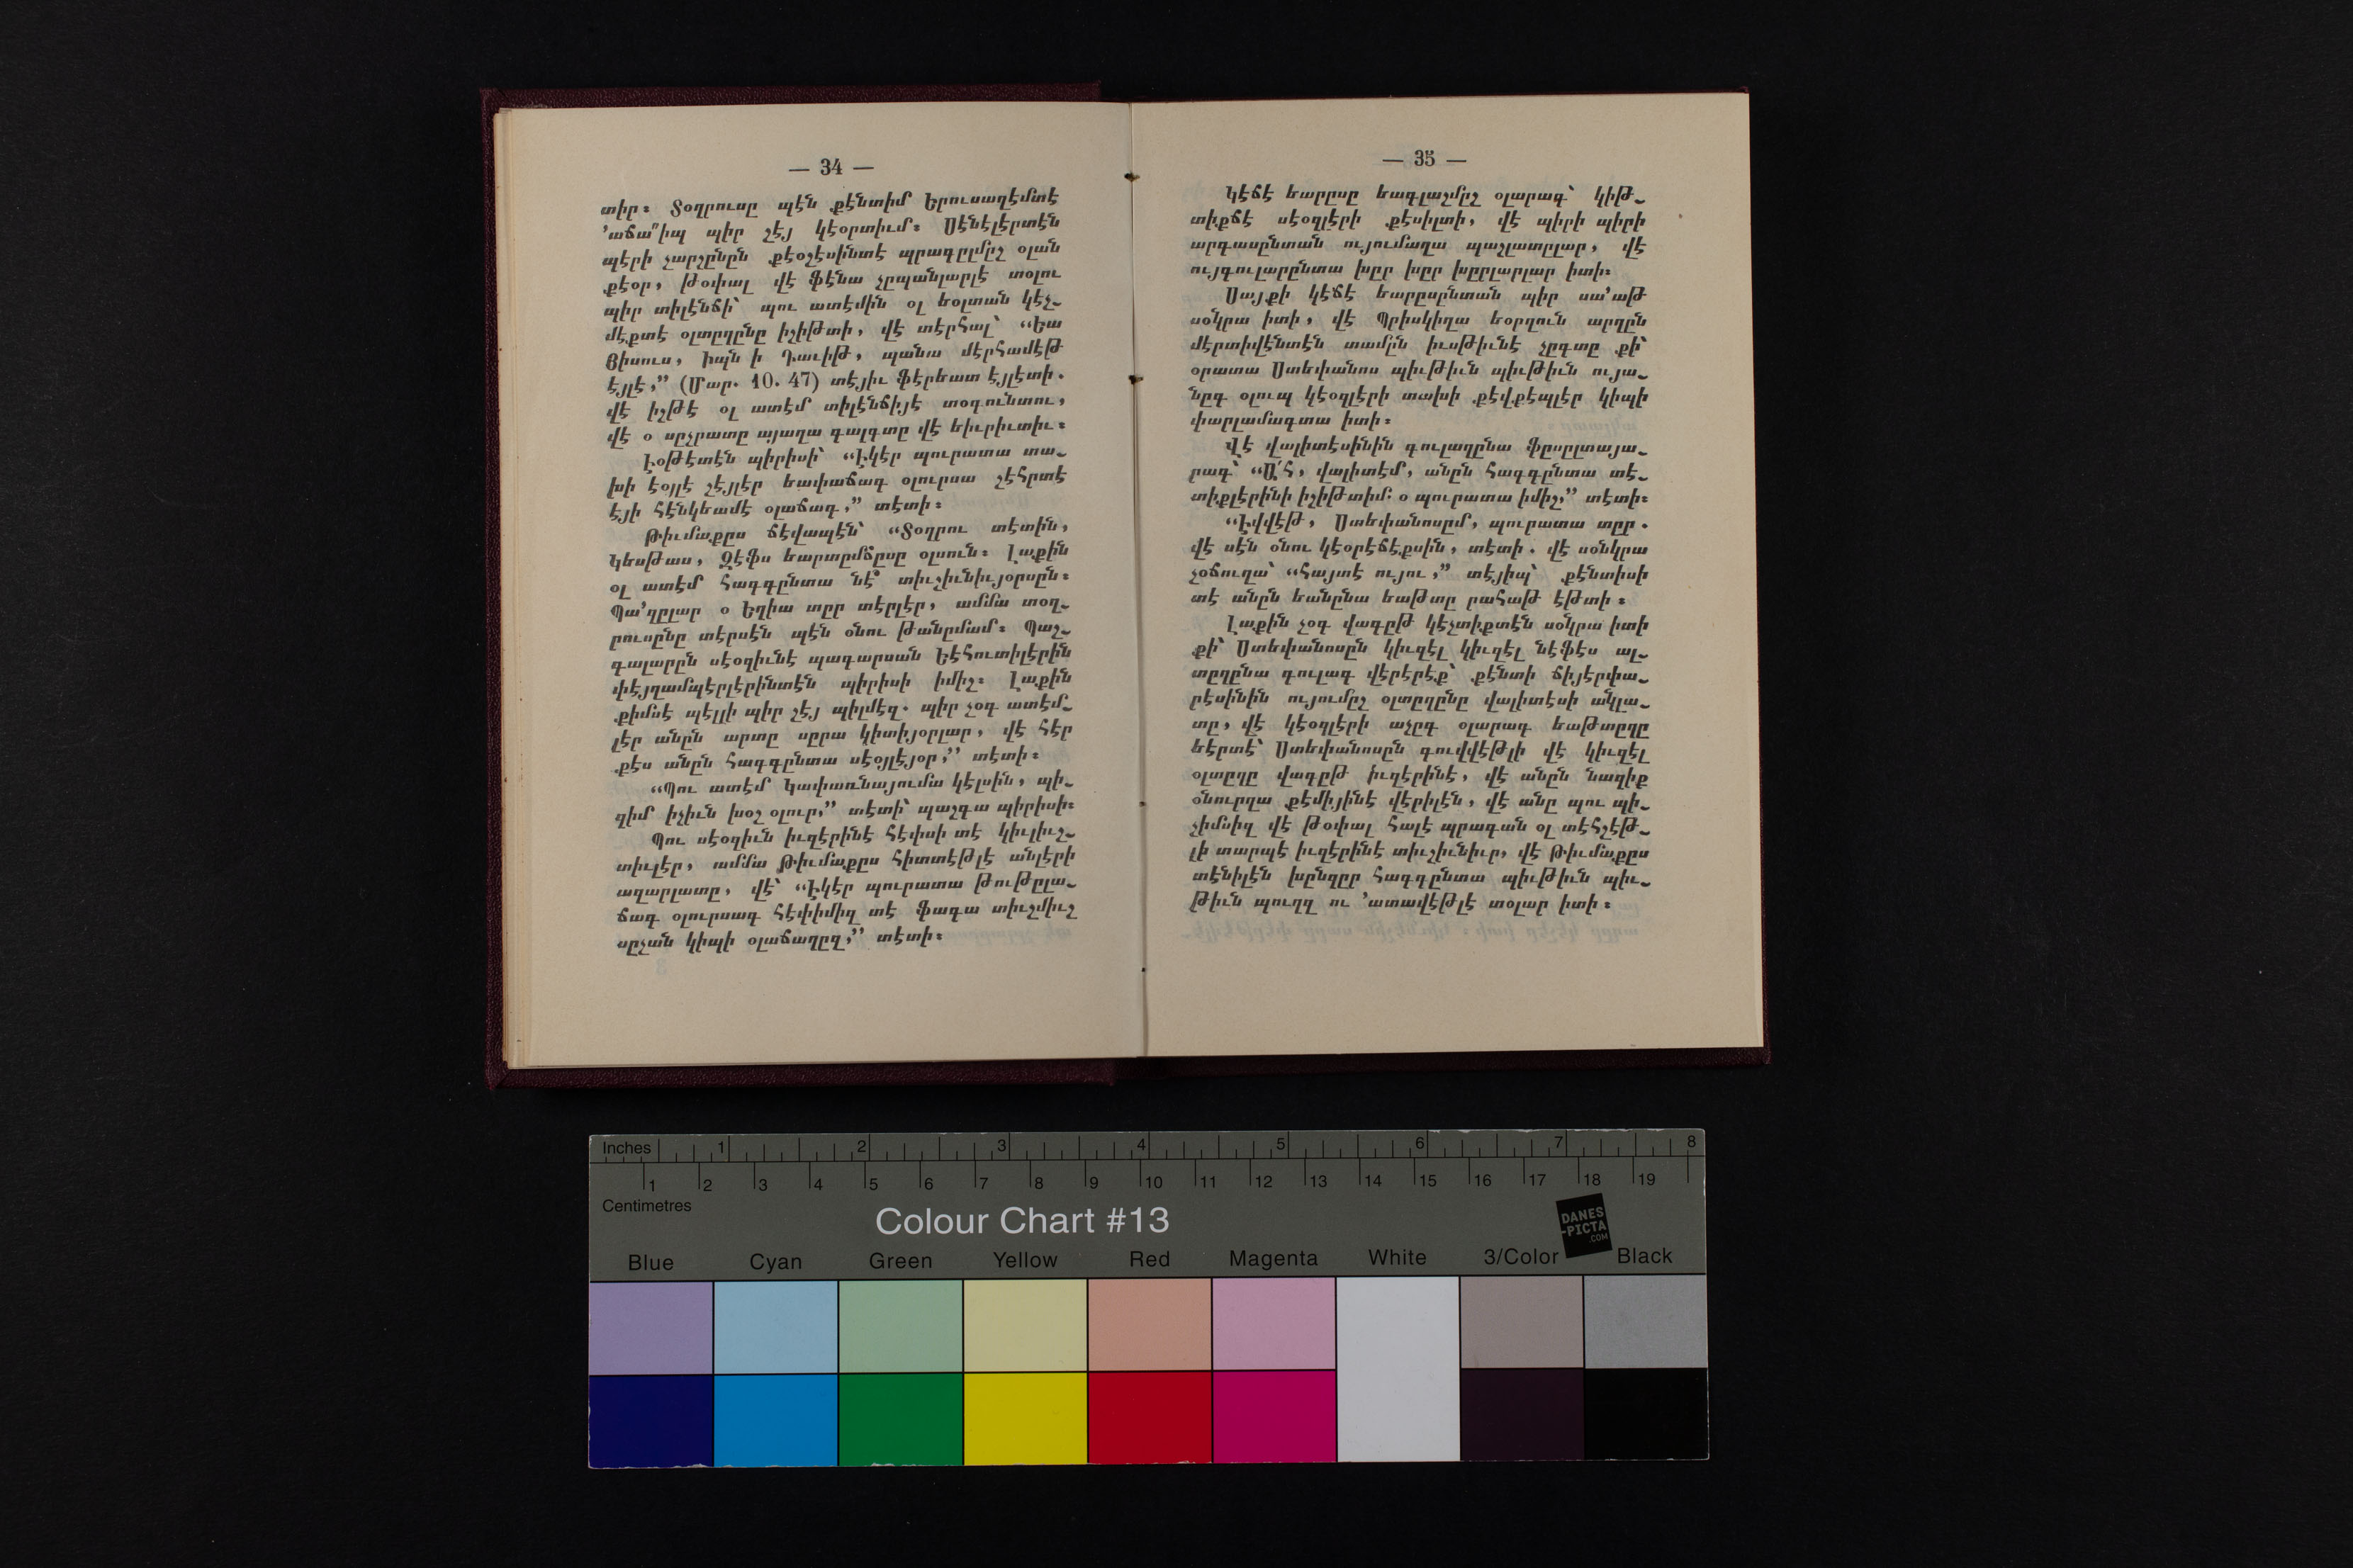 — 34 —
տիր։ Տօղրուսը պէն քէնտիմ Երուսաղէմտէ
՚աճա՞իպ պիր շէյ կէօրտիւմ։ Սէնէլէրտէն
պէրի չարչընըն քէօշէսինտէ պրագըլմըշ օլան
քէօր, թօփալ վէ ֆէնա չըպանլարլէ տօլու
պիր տիլէնճի՝ պու ատէմին օլ եօլտան կէչ֊
մէքտէ օլտըղընը իշիթտի, վէ տէրհալ՝ “Եա
Յիսուս, իպն ի Դաւիթ, պանա մէրհամէթ
էյլէ,” (Մար. 10. 47) տէյիւ ֆէրեատ էյլէտի.
վէ իշթէ օլ ատէմ տիլէնճիյէ տօգունտու,
վէ օ սըչրատը այաղա գալգտը վէ եիւրիւտիւ։
Էօթէտէն պիրիսի՝ “Էկէր պուրատա տա֊
խի էօյլէ շէյլէր եափաճագ օլուրսա շէհրտէ
էյի հէնկեամէ օլաճագ,” տէտի։
Թիւմաքըս ճէվապէն՝ “Տօղրու տէտին,
Կեսթաս, Զէֆս եարտըմճըսը օլսուն։ Լաքին
օլ ատէմ հագգընտա նէ՞ տիւշիւնիւյօրսըն։
Պա՚ղըլար օ Եղիա տըր տէրլէր, ամմա տօղ֊
րուսընը տէրսէն պէն օնու թանըմամ։ Պաշ֊
գալարըն սէօզիւնէ պագարսան Եէհուտիլէրին
փէյղամպէրլէրինտէն պիրիսի իմիշ։ Լաքին
քիմսէ պէլլի պիր շէյ պիլմէզ. պիր չօգ ատէմ֊
լէր անըն արտը սըրա կիտիյօրլար, վէ հէր
քէս անըն հագգընտա սէօյլէյօր,” տէտի։
“Պու ատէմ Կափառնայումա կէլսին, պի֊
զիմ իչիւն խօշ օլուր,” տէտի՝ պաշգա պիրիսի։
Պու սէօզիւն իւզէրինէ հէփսի տէ կիւլիւշ֊
տիւլէր, ամմա Թիւմաքըս հիտտէթլէ անլէրի
ազարլատը, վէ՝ “Էկէր պուրատա թութըլա֊
ճագ օլուրսագ հէփիմիզ տէ ֆագա տիւշմիւշ
սըչան կիպի օլաճաղըզ,” տէտի։
— 35 —
Կէճէ եարըսը եագլաշմըշ օլարագ՝ կիթ֊
տիքճէ սէօզլէրի քէսիլտի, վէ պիրի պիրի
արդասընտան ույումաղա պաշլատըլար, վէ
ույգուլարընտա խըր խըր խըրլարլար իտի։
Սայքի կէճէ եարըսընտան պիր սա՚աթ
սօնկրա իտի, վէ Պրիսկիղա եօրղուն արղըն
մէրտիվէնտէն տամըն իւսթիւնէ չըգտը քի՝
օրատա Ստեփանոս պիւթիւն պիւթիւն ույա֊
նըգ օլուպ կէօզլէրի տախի քէվքէպլէր կիպի
փարլամագտա իտի։
Վէ վալիտէսինին գուլաղընա ֆըսըլտայա֊
րագ՝ “Ա՜հ, վալիտէմ, անըն հագգընտա տէ֊
տիքլէրինի իշիթտիմ. օ պուրատա իմիշ,” տէտի։
“Էվվէթ, Ստեփանոսըմ, պուրատա տըր.
վէ սէն օնու կէօրէճէքսին, տէտի. վէ սօնկրա
չօճուղա՝ “հայտէ ույու,” տէյիպ՝ քէնտիսի
տէ անըն եանընա եաթտը րահաթ էթտի։
Լաքին չօգ վագըթ կէչտիքտէն սօնկրա իտի
քի՝ Ստեփանոսըն կիւզէլ կիւզէլ նէֆէս ալ֊
տըղընա գուլագ վէրէրէք՝ քէնտի ճիյէրփա֊
րէսինին ույումըշ օլտըղընը վալիտէսի անկլա֊
տը, վէ կէօզլէրի աչըգ օլարագ եաթտըղը
եէրտէ՝ Ստեփանոսըն գուվվէթլի վէ կիւզէլ
օլտըղը վագըթ իւզէրինէ, վէ անըն նազիք
օնուրղա քէմիյինէ վէրիլէն, վէ անը պու պի֊
չիմսիզ վէ թօփալ հալէ պրագան օլ տէհշէթ֊
լի տարպէ իւզէրինէ տիւշիւնիւր, վէ Թիւմաքըս
տէնիլէն խընզըր հագգընտա պիւթիւն պիւ֊
թիւն պուղզ ու ՚ատավէթլէ տօլար իտի։
Inches 1 2 3 4 5 6 7 8
1 2 3 4 5 6 7 8 9 10 11 12 13 14 15 16 17 18 19
Centimetres
Colour Chart #13
DANES
-PICTA
.COM
Blue Cyan Green Yellow Red Magenta White 3/Color Black